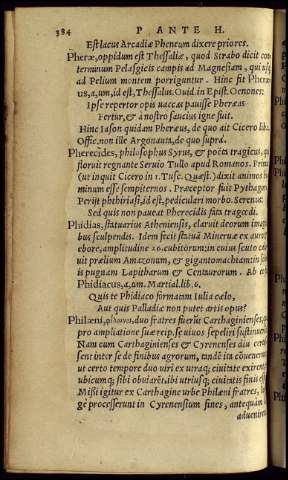 384 P ANTE H.
Est lacus Arcadiæ Pheneum dixere priores.
Pheræ, oppidum est Thessaliæ, quod Strabo dicit con
terminum Pelasgicis campis ad Magnesiam, qui usq;
ad Pelium montem porriguntur. Hinc fit Pheræ
us, a, um, id est, Thessalus. Ouid. in Epist. Oenones:
Ipse repertor opis uaccas pauisse Pheræas
Fertur, & à nostro saucius igne fuit.
Hinc Iason quidam Pheræus, de quo ait Cicero lib.
Offic. non ille Argonauta, de quo suprà.
Pherecides, philosophus Syrus, & poëta tragicus, qui
floruit regnante Seruio Tullo apud Romanos. Primus
(ut inquit Cicero in 1. Tusc. Quæst.) dixit animos ho
minum esse sempiternos. Præceptor fuit Pythagoræ
Perijt phthiriasi, id est, pediculari morbo. Serenus:
Sed quis non paueat Pherecidis fata tragœdi.
Phidias, statuarius Atheniensis, claruit deorum imagini
bus sculpendis. Idem fecit statuã Mineruæ ex auro &
ebore, amplitudine 26. cubitorum: in cuius scuto cæla
uit prælium Amazonum, & gigantomachiam: in so
is pugnam Lapitharum & Centaurorum. Ab eo
Phidiacus, a, um. Martial. lib. 6.
Quis te Phidiaco formatam Iulia cælo,
Aut quis Palladiæ non putet artis opus?
Philæni, duo fratres fuerũt Carthaginenses, qui
pro ampliatione suæ reip. se uiuos sepeliri sustinuerũt
Nam cum Carthaginienses & Cyrenenses diu certas
sent inter se de finibus agrorum, tandē in cōuenerunt
ut certo tempore duo uiri ex utraq; ciuitate exirent
ubicumq; sibi obuiarēt, ibi utriusq; ciuitatis finis esset
Missi igitur ex Carthagine urbe Philæni fratres, lon
gè processerunt in Cyrenensium fines, antequàm
aduenirent